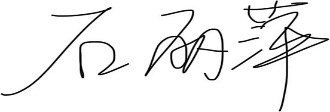 石丽萍